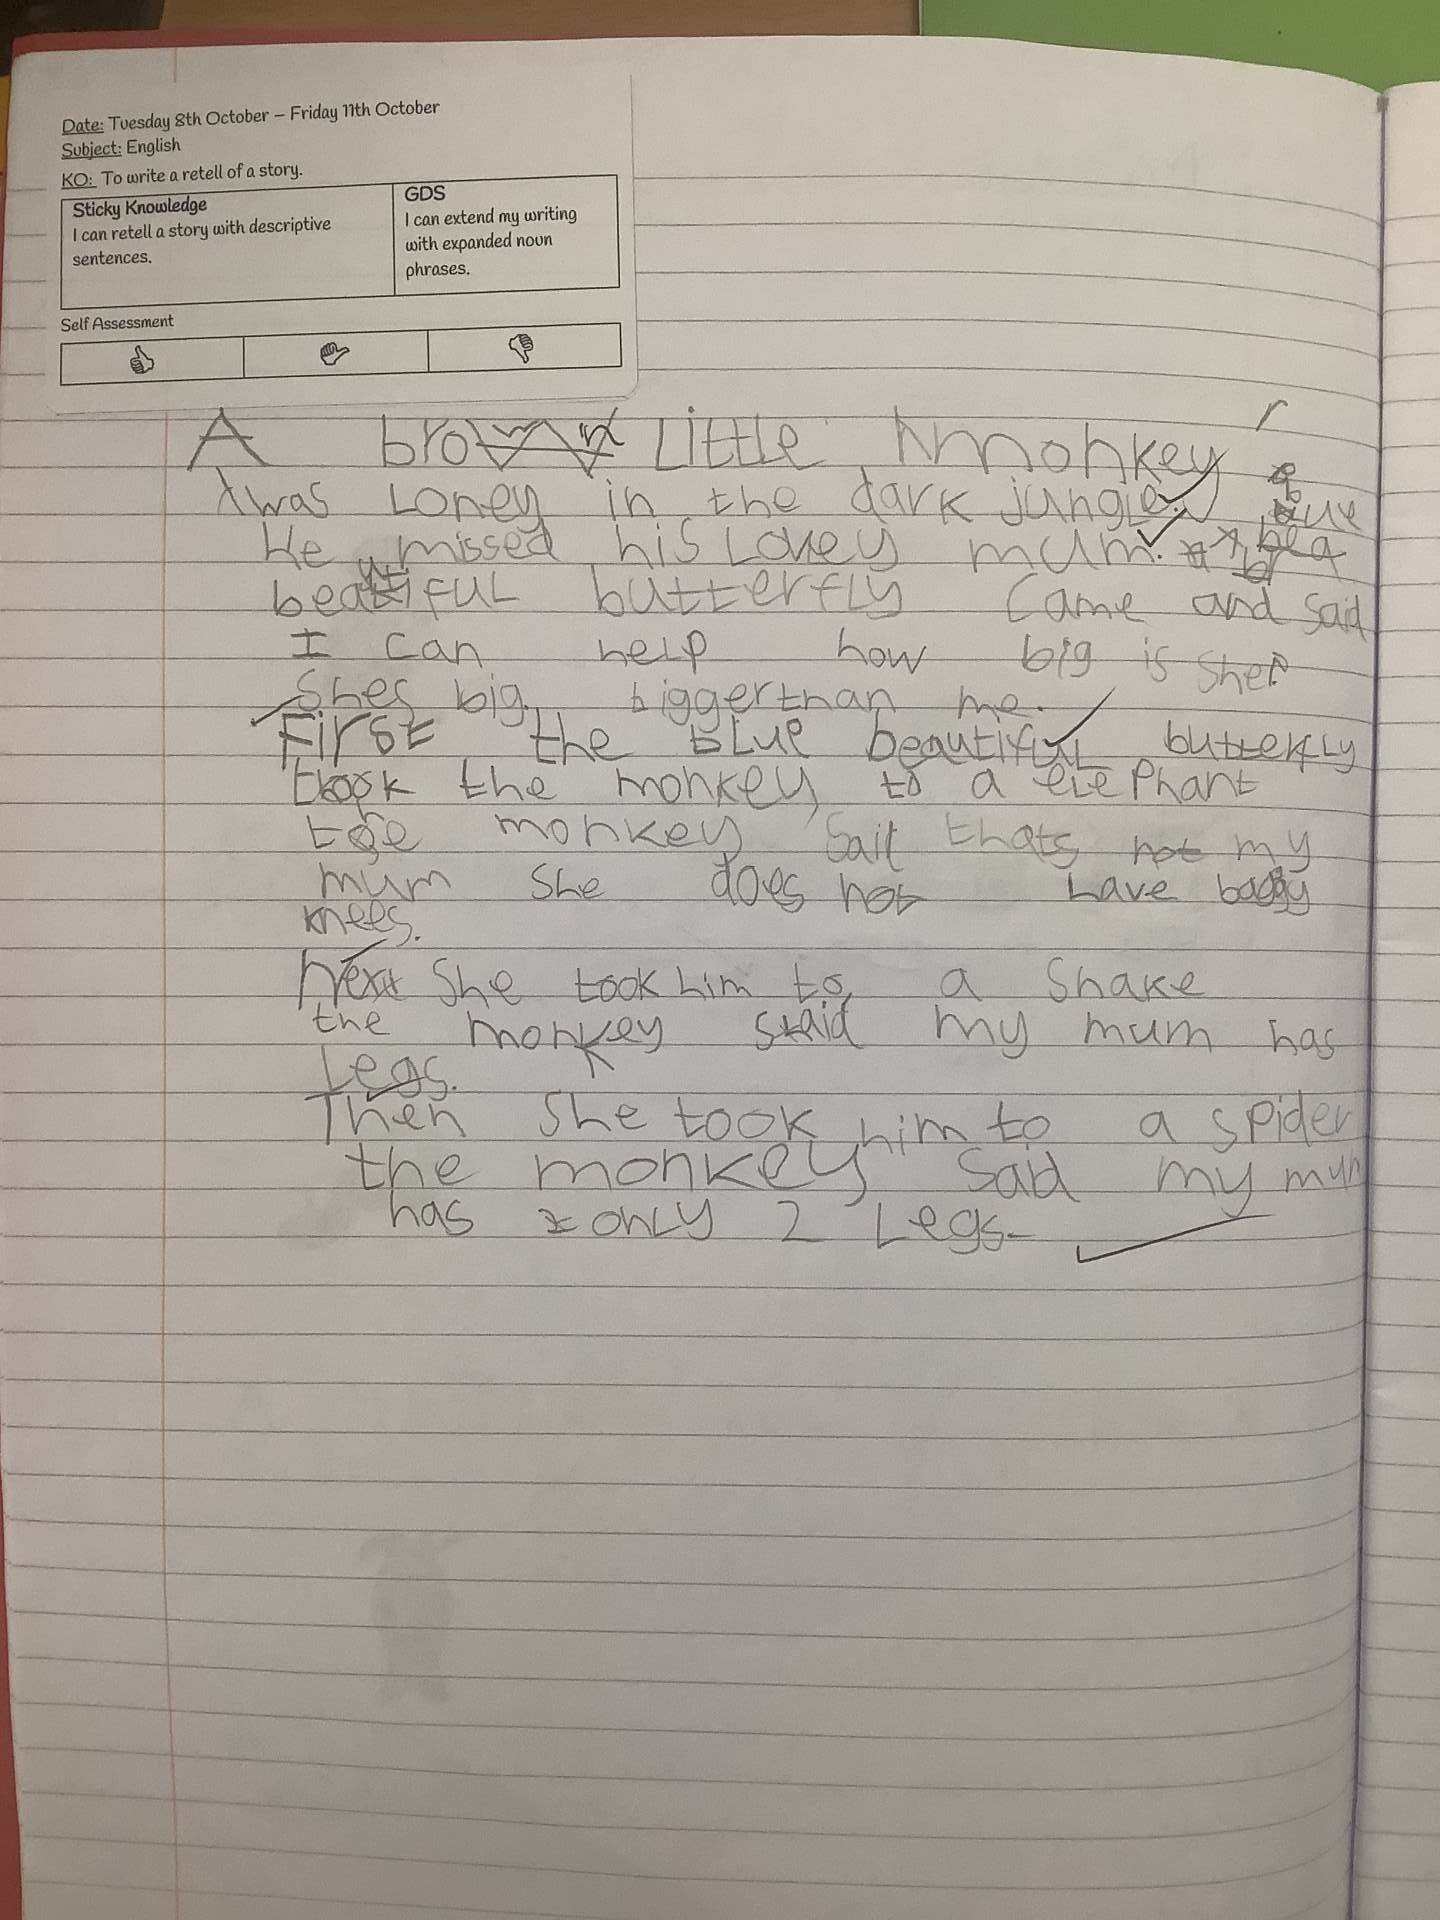 Date: Tuesday 8th October – Friday 11th October
Subject: English
KO: To write a retell of a story.
Sticky Knowledge
I can retell a story with descriptive
sentences.
GDS
I can extend my writing
with expanded noun
phrases.
Self Assessment
A brown Little monkey
was Loney in the dark jungle.
He missed his Lovey mum. a
beautiful butterfly came and said
I can help how big is she?
Shes big. bigger than me.
First the bLue beautiful butterfly
took the monkey to a elephant
the monkey Sait thats not my
mum She does not have baggy
knees.
Next She took him to a Snake
the monkey said my mum has
Legs.
Then She took him to a spider
the monkey Said my mum
has only 2 Legs.